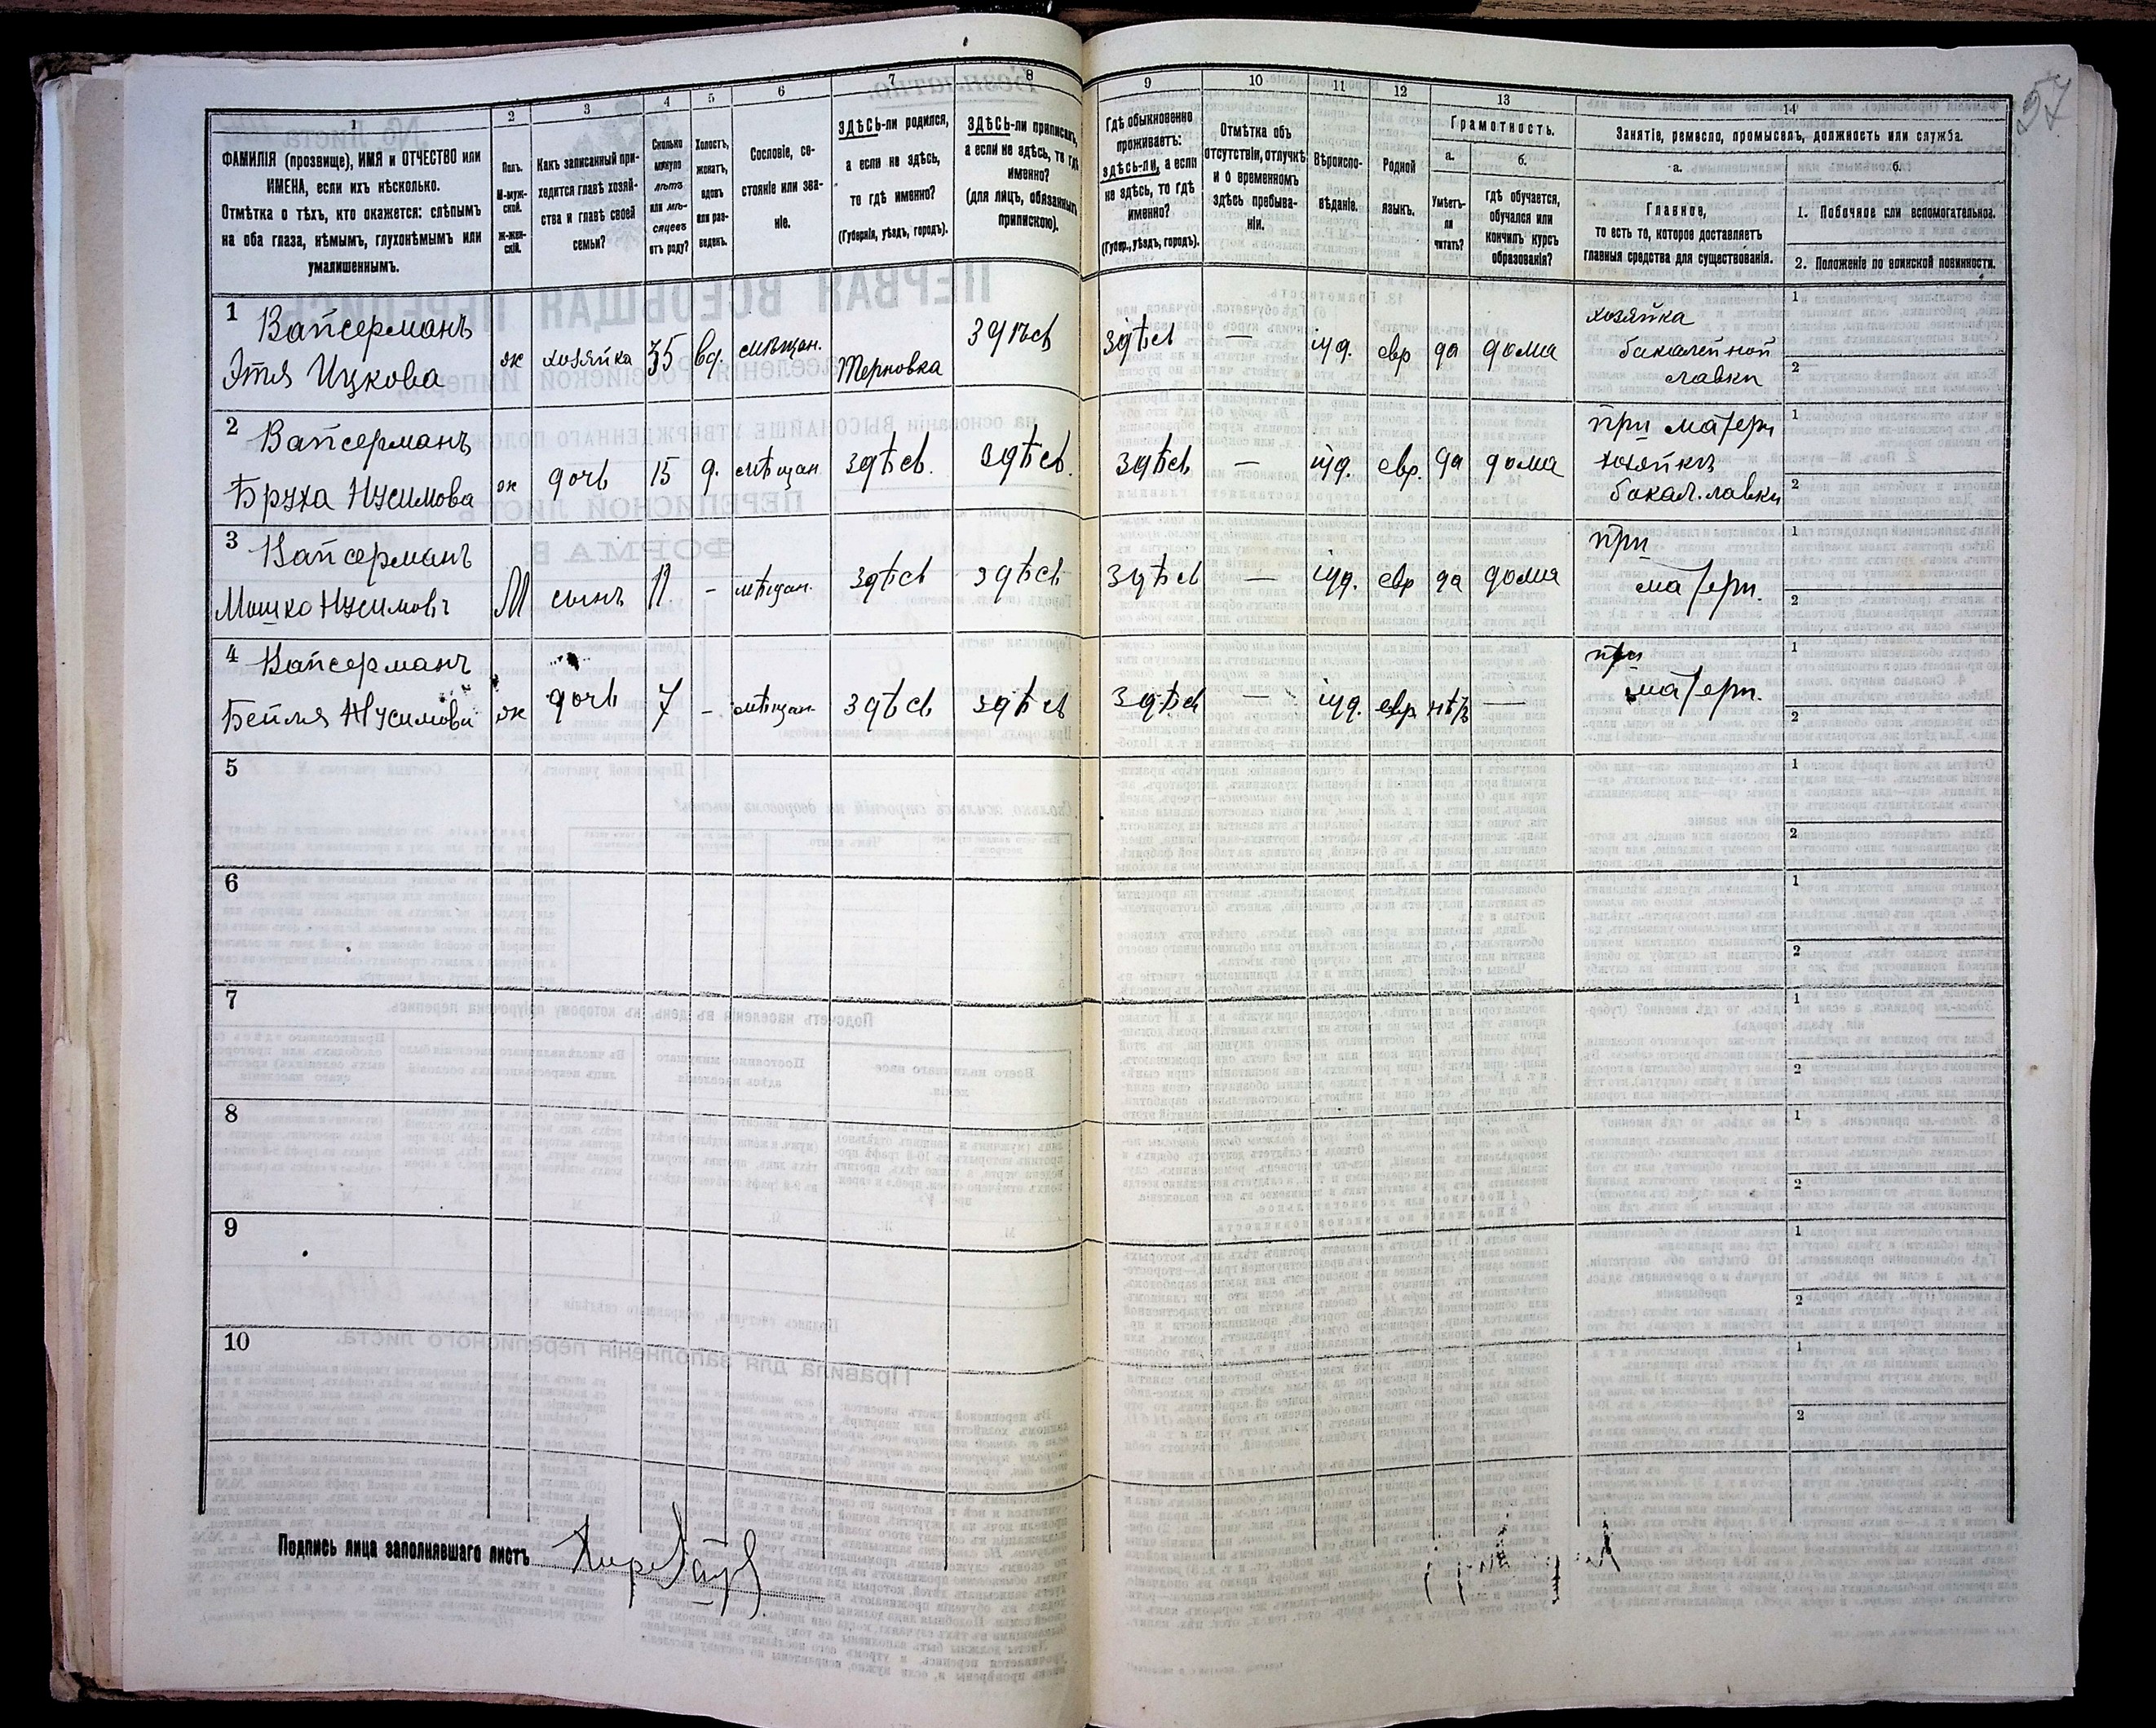 57
1 2 3 4 5 6 7 8 9 10 11 12 13 14
ФАМИЛІЯ (прозвище), ИМЯ и ОТЧЕСТВО или
ИМЕНА, если ихъ нѣсколько.
Отмѣтка о тѣхъ, кто окажется: слѣпымъ
на оба глаза, нѣмымъ, глухонѣмымъ или
умалишеннымъ.
Полъ.
М-муж-
ской.
Ж-жен-
скій.
Какъ записанный при-
ходится главѣ хозяй-
ства и главѣ своей
семьи?
Сколько
минуло
лѣтъ
или мѣ-
сяцевъ
отъ роду?
Холостъ,
женатъ,
вдовъ
или раз-
веденъ.
Сословіе, со-
стояніе или зва-
ніе.
ЗДѢСЬ-ли родился,
а если не здѣсь,
то гдѣ именно?
(Губернія, уѣздъ, городъ).
ЗДѢСЬ-ли приписанъ,
а если не здѣсь, то гдѣ
именно?
(для лицъ, обязанныхъ
припискою).
Гдѣ обыкновенно
проживаетъ:
здѣсь-ли, а если
не здѣсь, то гдѣ
именно?
(Губер., уѣздъ, городъ).
Отмѣтка объ
отсутствіи, отлучкѣ
и о временномъ
здѣсь пребыва-
ніи.
Вѣроиспо-
вѣданіе.
Родной
языкъ.
Грамотность.
а.
Умѣетъ-
ли
читать?
б.
гдѣ обучается,
обучался или
кончилъ курсъ
образованія?
Занятіе, ремесло, промыселъ, должность или служба.
а.
Главное,
то есть то, которое доставляетъ
главныя средства для существованія.
б.
1. Побочное или вспомогательное.
2. Положеніе по воинской повинности.
1 Вайсерманъ
Этя Ицкова ж хозяйка 35 вд. мѣщан. Терновка здѣсь здѣсь — іуд. евр да дома хозяйка
бакалейной
лавки
1
2
2 Вайсерманъ
Бруха Нусимова ж дочь 15 д. мѣщан. здѣсь. здѣсь. здѣсь — іуд. евр. да дома при матери
хозяйкѣ
бакал. лавки
1
2
3 Вайсерманъ
Мошко Нусимовъ М сынъ 11 - мѣщан. здѣсь здѣсь здѣсь — іуд. евр да дома при
матери.
1
2
4 Вайсерманъ
Бейля Нусимова ж дочь 7 - мѣщан. здѣсь здѣсь здѣсь — іуд. евр нѣтъ — при
матери.
1
2
5
1
2
6
1
2
7
1
2
8
1
2
9
1
2
10
1
2
Подпись лица заполнявшаго листъ